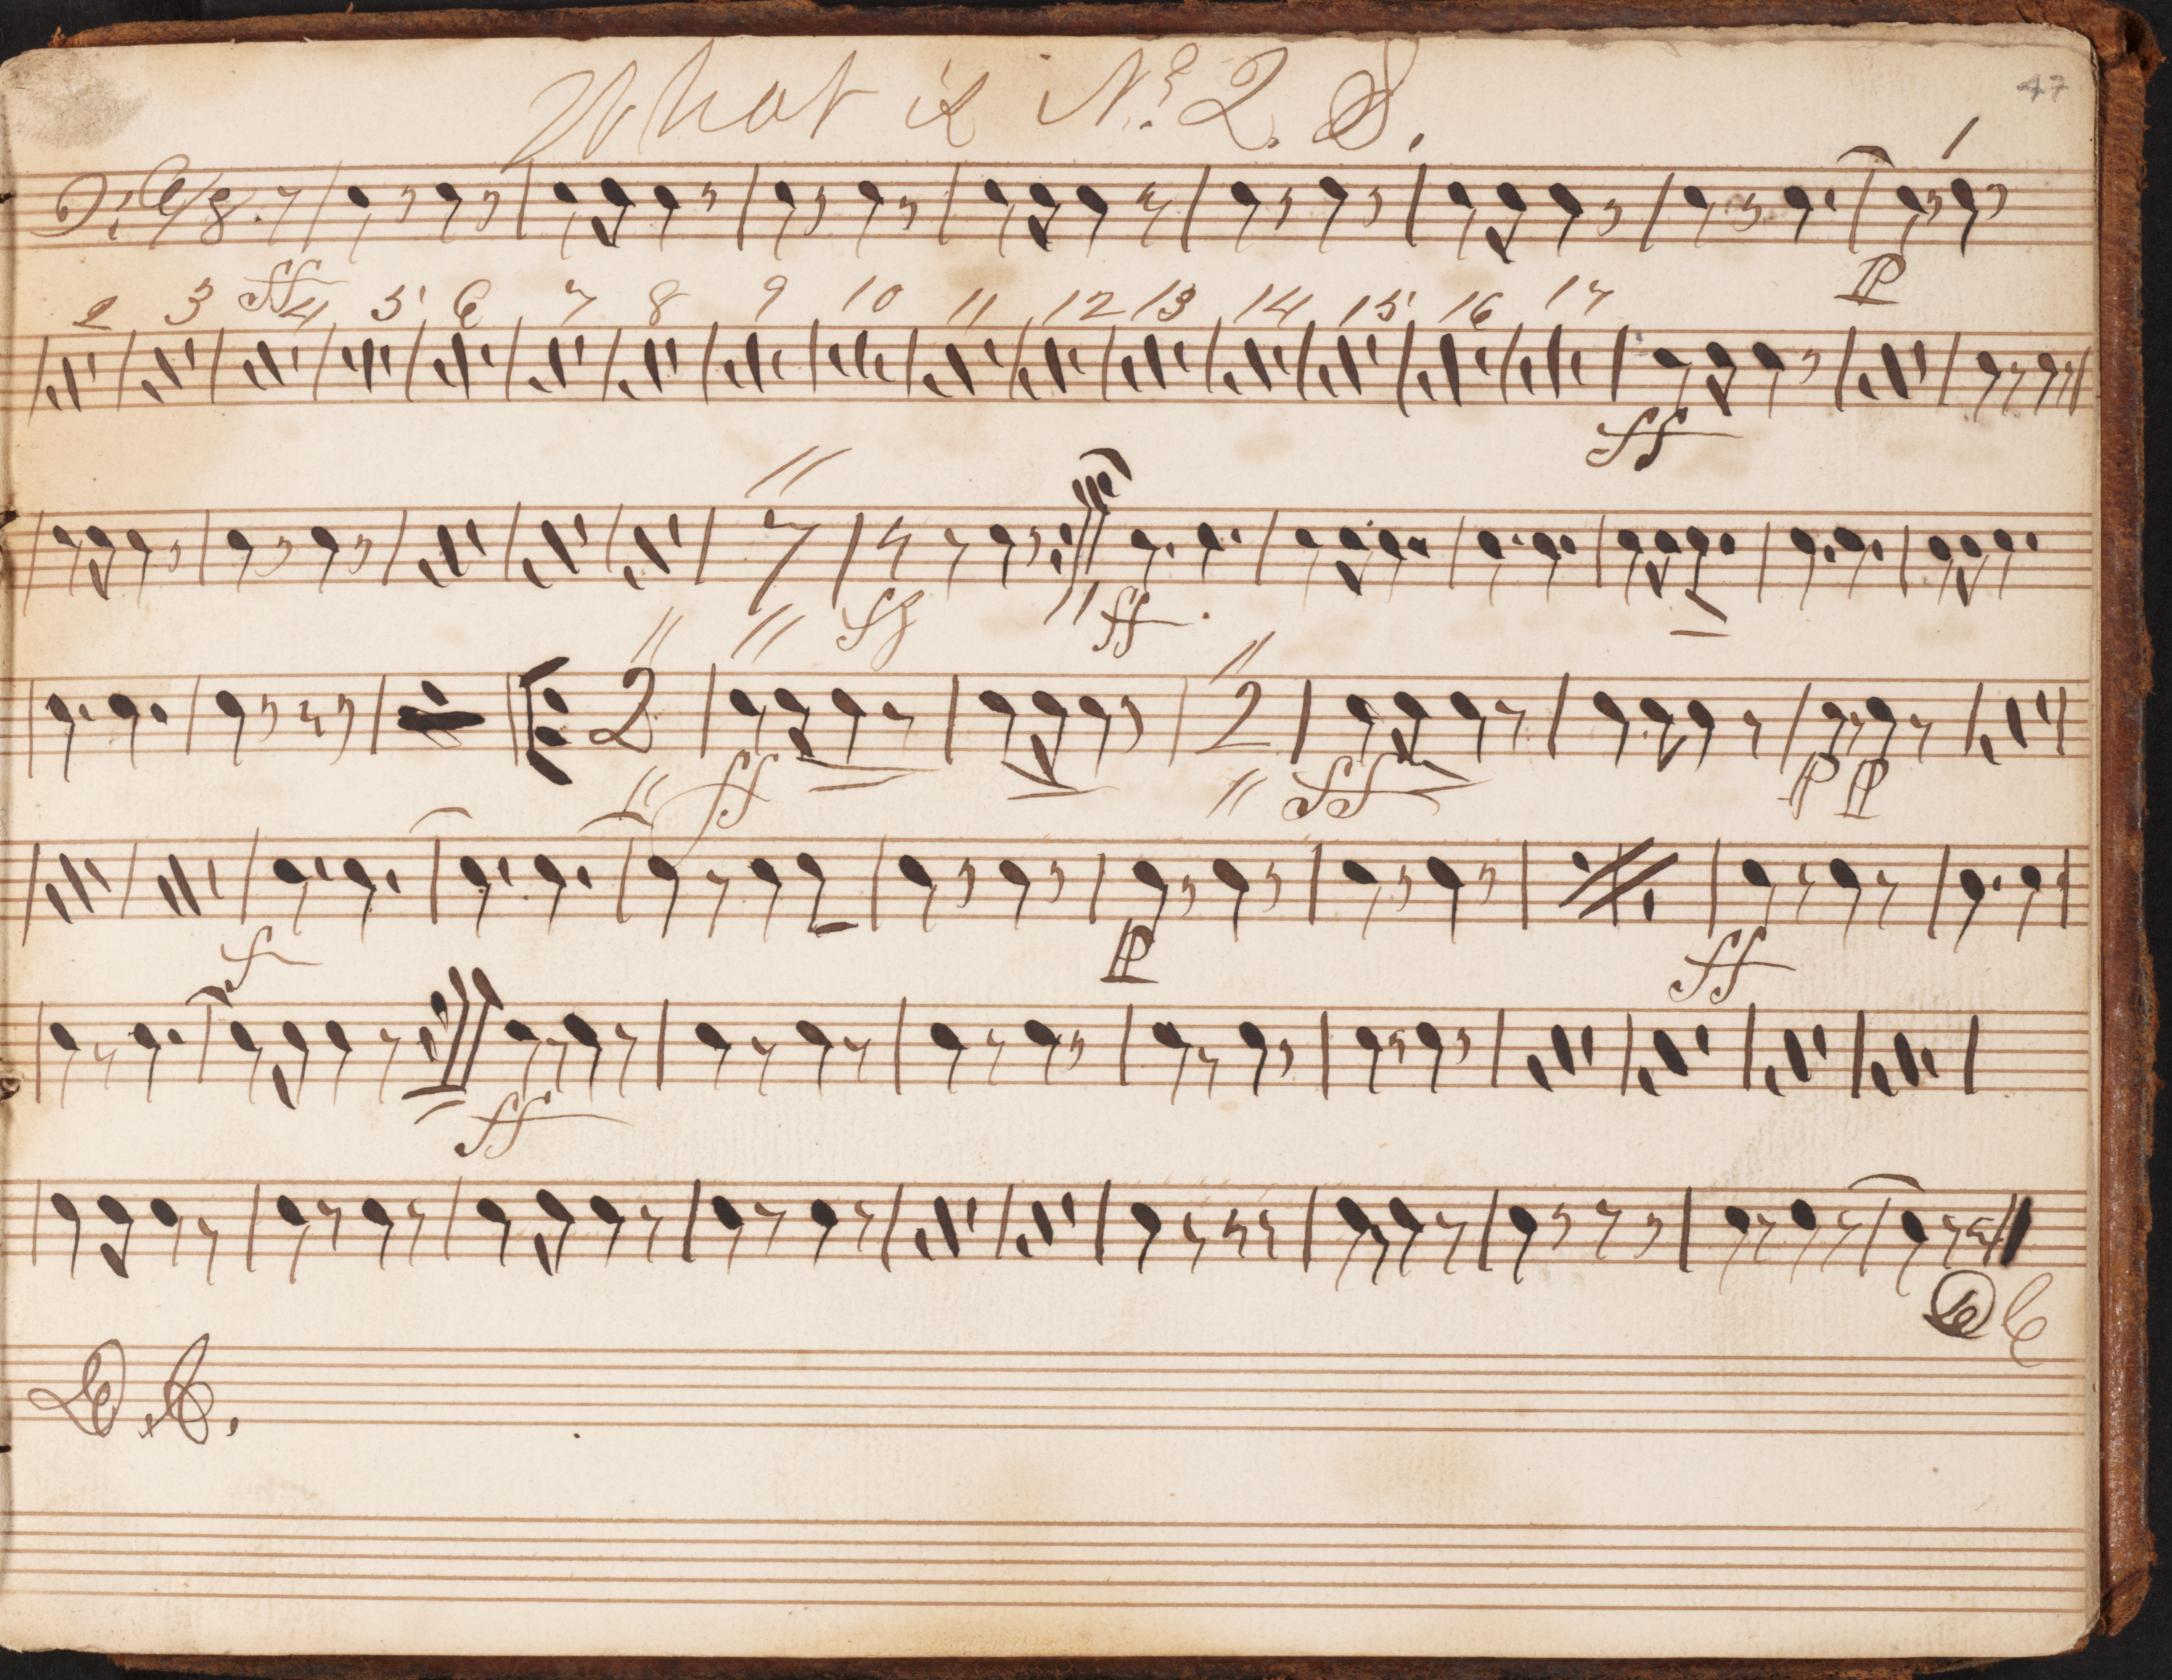 What is No. 2. S.
47
6/8.
1
ff
p
2 3 4 5 6 7 8 9 10 11 12 13 14 15 16 17
ff
fz ff.
2 2
ff ff pp
f p ff
ff
D.C.